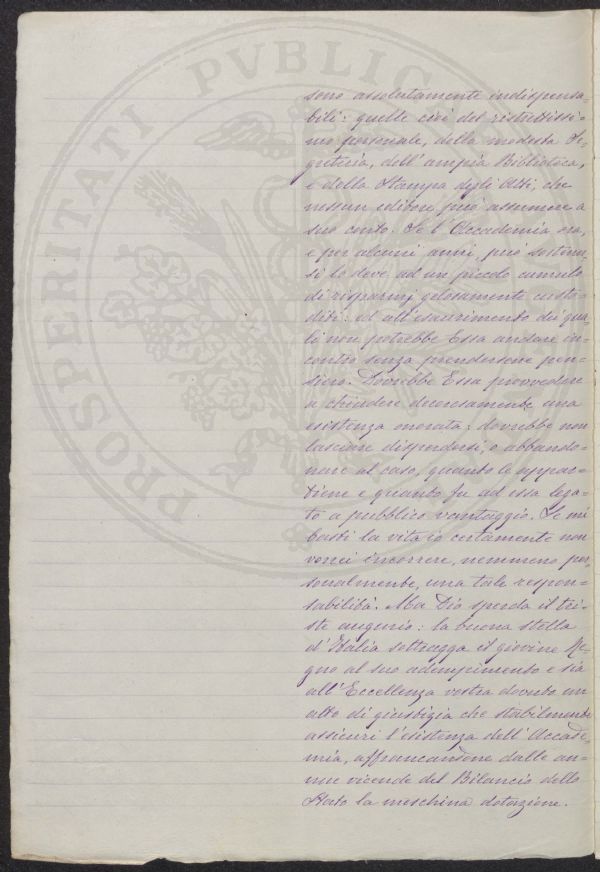 PROSPERITATI PVBLICAE
sono assolutamente indispensa-
bili: quelle cioè del ristrettissi-
mo personale, della modesta Se-
greteria, dell'ampia Biblioteca,
e della Stampa degli Atti, che
nessun editore può assumere a
suo conto. Se l'Accademia ora,
e per alcuni anni, può sostener-
si lo deve ad un piccolo cumulo
di risparmj gelosamente custo-
diti: ed all'esaurimento dei qua-
li non potrebbe Essa andare in-
contro senza prendersene pen-
siero. Dovrebbe Essa provvedere
a chiudere decorosamente una
esistenza onorata: dovrebbe non
lasciare disperdersi, o abbando-
nare al caso, quanto le appar-
tiene e quanto fu ad essa lega-
to a pubblico vantaggio. Se mi
basti la vita io certamente non
vorrei incorrere, nemmeno per-
sonalmente, una tale respon-
sabilità. Ma Dio sperda il tri-
ste augurio: la buona stella
d'Italia sottragga il giovine Re-
gno al suo adempimento e sia
all'Eccellenza vostra dovuto un
atto di giustizia che stabilmente
assicuri l'esistenza dell'Accade-
mia, affrancandone dalle an-
nue vicende del Bilancio dello
Stato la meschina dotazione.